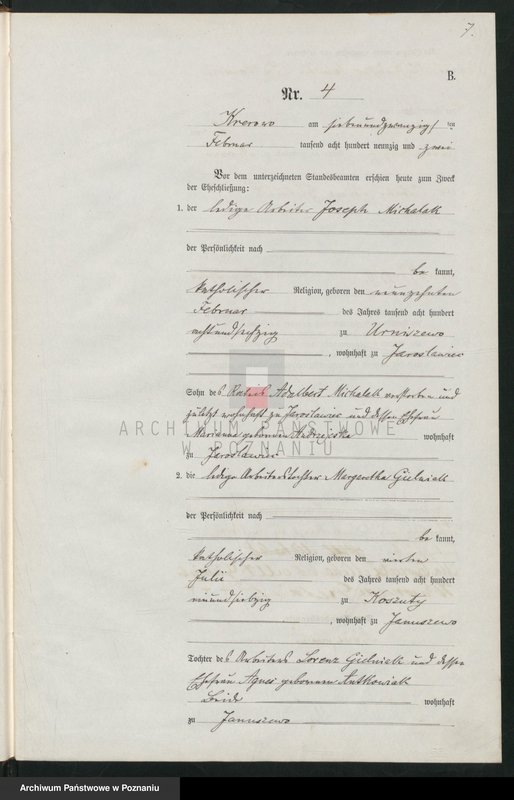 7.
B.
Nr. 4
Krerowo am siebenundzwanzig ten
Februar tausend acht hundert neunzig und zwei
Vor dem unterzeichneten Standesbeamten erschien heute zum Zweck
der Eheschließung:
1. der ledige Arbeiter Joseph Michalak
der Persönlichkeit nach
be kannt,
katholischer Religion, geboren den neunzehnten
Februar des Jahres tausend acht hundert
achtundsechzig zu Urniszewo
, wohnhaft zu Jaroslawiec
Sohn des Adalbert Michalak verstorben und
zuletzt wohnhaft zu Jaroslawiec und dessen Ehefrau
Marianna geborenen wohnhaft
zu Jaroslawiec
2. die ledige Arbeiterstochter Margaretha Gielniak
der Persönlichkeit nach
be kannt,
katholischer Religion, geboren den vierten
Julii des Jahres tausend acht hundert
neunundsiebzig zu Koszuty
, wohnhaft zu Januszewo
Tochter des Arbeiters Lorenz Gielniak und dessen
Ehefrau Agnes geborenen Antkowiak
Beide wohnhaft
zu Januszewo
ARCHIWUM PAŃSTWOWE
W POZNANIU
Archiwum Państwowe w Poznaniu